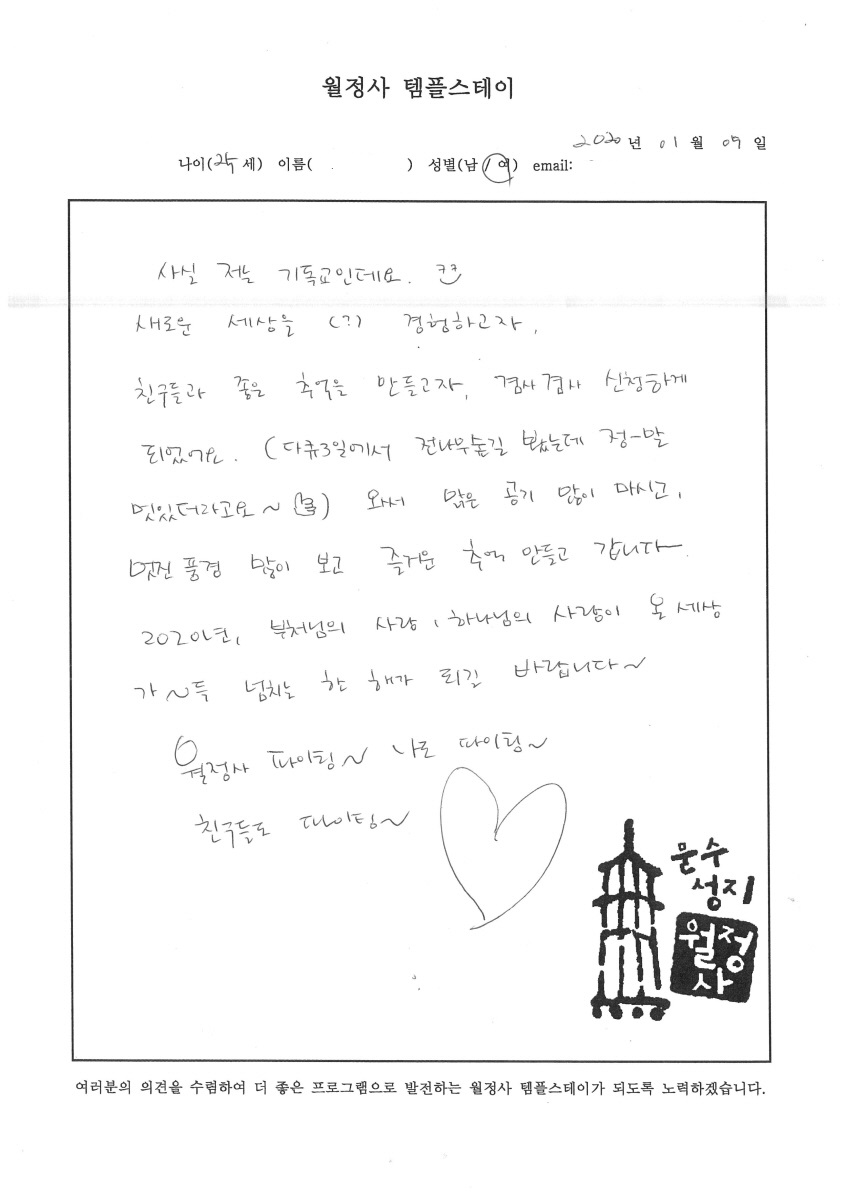 월정사 템플스테이
2020년 01월 09일
나이(24세) 이름( ) 성별(남/여) email:
사실 저는 기독교인데요. ㅋㅋ
새로운 세상을 (?) 경험하고자,
친구들과 좋은 추억을 만들고자, 겸사겸사 신청하게
되었어요. (다큐3일에서 전나무숲길 봤는데 정-말
멋있더라고요~) 와서 맑은 공기 많이 마시고,
멋진 풍경 많이 보고 즐거운 추억 만들고 갑니다.
2020년, 부처님의 사랑, 하나님의 사랑이 온 세상
가~득 넘치는 한 해가 되길 바랍니다~
월정사 파이팅~ 나도 파이팅~
친구들도 파이팅~
문수
성지
월정
사
여러분의 의견을 수렴하여 더 좋은 프로그램으로 발전하는 월정사 템플스테이가 되도록 노력하겠습니다.